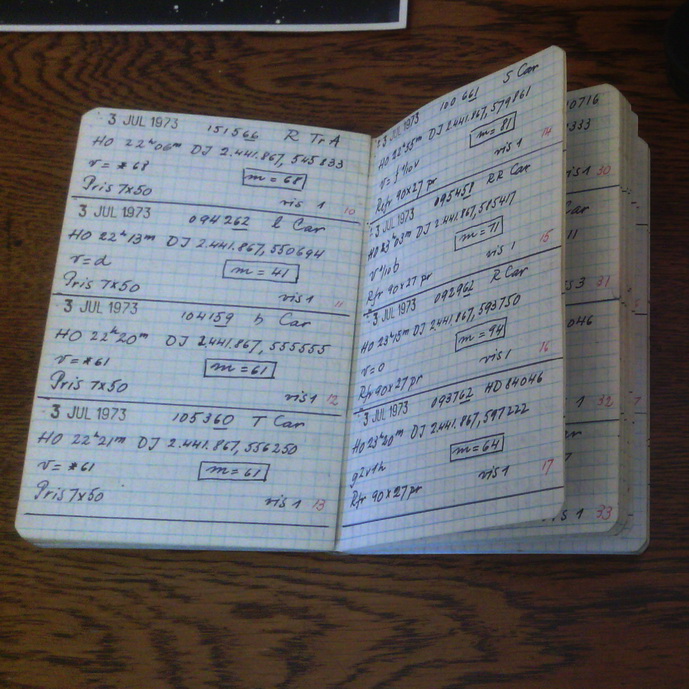 3 JUL 1973 151566 R TrA
HO 22h06m DJ 2.441.867,545833
v = *68 m = 68
Pris 7x50
vis 1 10
3 JUL 1973 094262 l Car
HO 22h13m DJ 2.441.867,550694
v = d m = 41
Pris 7x50
vis 1 11
3 JUL 1973 104159 h Car
HO 22h20m DJ 2.441.867,555555
v = *61 m = 61
Pris 7x50
vis 1 12
3 JUL 1973 105360 T Car
HO 22h21m DJ 2.441.867,556250
v = *61 m = 61
Pris 7x50
vis 1 13
3 JUL 1973 100661 S Car
HO 22h55m DJ 2.441.867,579861
m = 81
Rfr 90x27 pr vis 1 14
3 JUL 1973 095458 RR Car
HO 23h03m DJ 2.441.867,585417
m = 71
Rfr 90x27 pr vis 1 15
3 JUL 1973 092962 R Car
HO 23h15m DJ 2.441.867,593750
v = 0 m = 94
Rfr 90x27 pr vis 1 16
3 JUL 1973 093762 HD 84046
HO 23h20m DJ 2.441.867,597222
g2v1h m = 64
Rfr 90x27 pr vis 1 17
0716
333
30
ar
11
31
046
1 32
vis 1 33